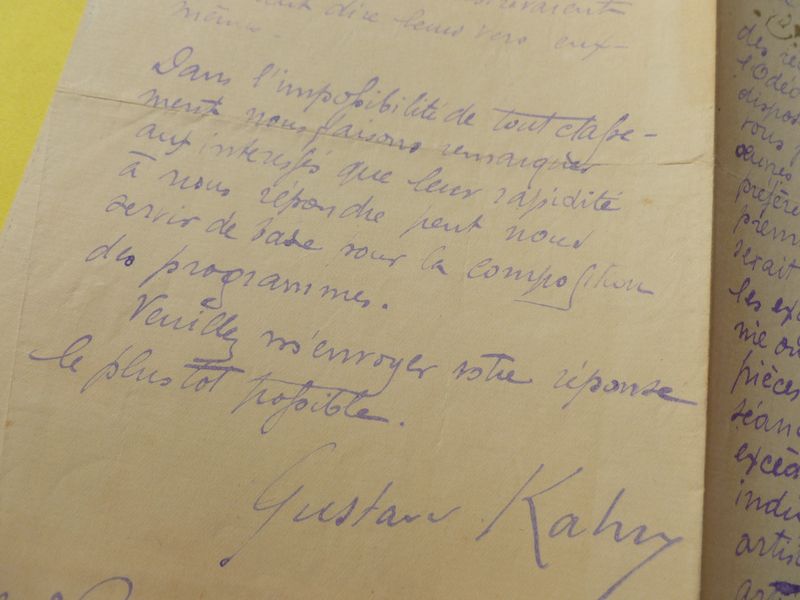 dire leurs vers eux-
même.
Dans l'impossibilité de tout classe-
ment nous faisons remarquer
aux intéressés que leur rapidité
à nous répondre peut nous
servir de base pour la composition
des programmes.
Veuillez m'envoyer votre réponse
le plus tôt possible.
Gustave Kahn
des
l'Odéo
dispos
vous
œuvres
préfére
prem
serait
les exé
nie ou
pièces
séan
excéd
indu
artis
artis